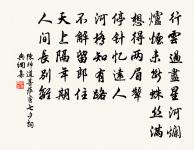 行雲過盡星河爛
爐煙未斷蛛絲滿
想得兩眉顰
停針憶遠人
河橋知有路
不解留郎住
天上隔年期
人間長別離
陳師道菩薩蠻七夕詞